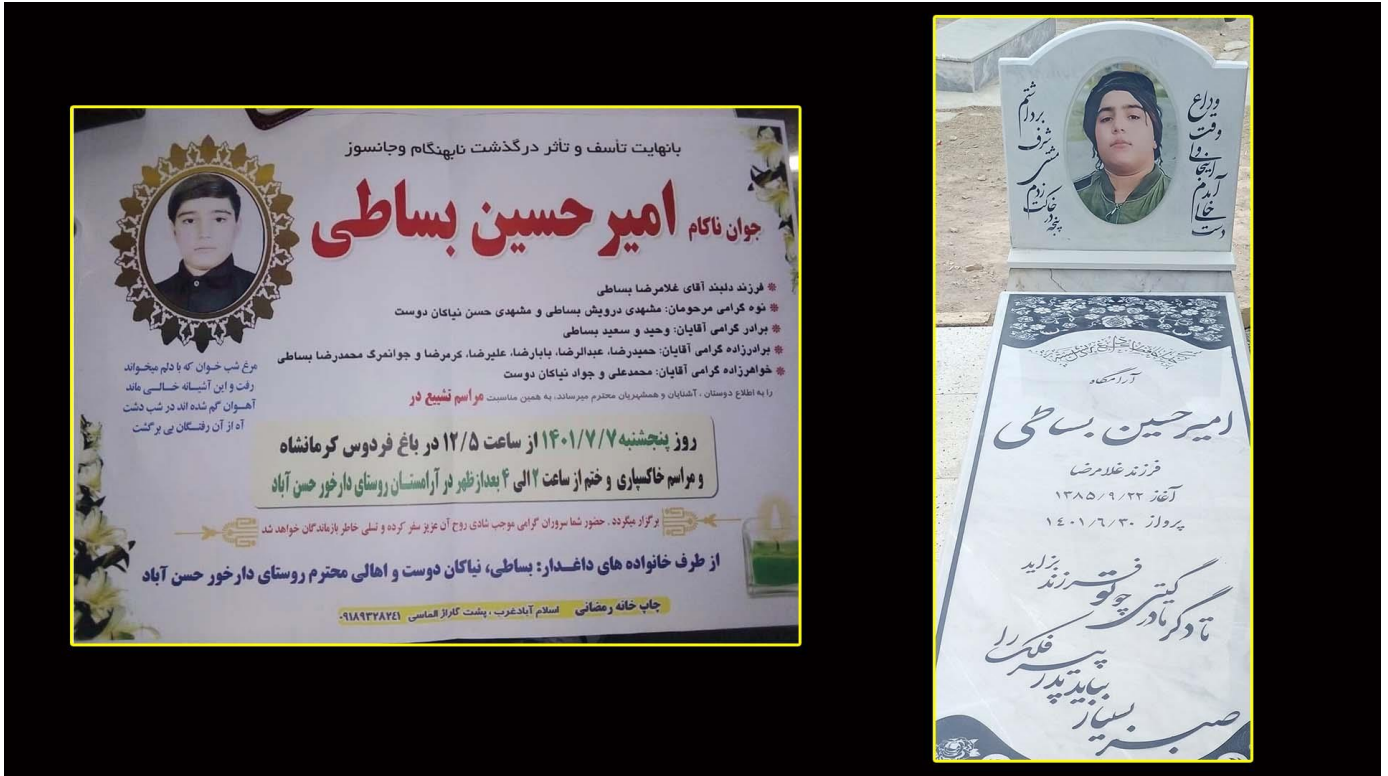 بانهایت تأسف و تأثر درگذشت نابهنگام وجانسوز
جوان ناکام امیرحسین بساطی
فرزند دلبند آقای غلامرضا بساطی
نوه گرامی مرحومان: مشهدی درویش بساطی و مشهدی حسن نیاکان دوست
برادر گرامی آقایان: وحید و سعید بساطی
برادرزاده گرامی آقایان: حمیدرضا، عبدالرضا، بابارضا، علیرضا، کرمرضا و جوانمرگ محمدرضا بساطی
خواهرزاده گرامی آقایان: محمدعلی و جواد نیاکان دوست
را به اطلاع دوستان ، آشنایان و همشهریان محترم میرساند، به همین مناسبت مراسم تشییع در
روز پنجشنبه ۱۴۰۱/۷/۷ از ساعت ۱۲/۵ در باغ فردوس کرمانشاه
و مراسم خاکسپاری و ختم از ساعت ۲ الی ۴ بعدازظهر در آرامستان روستای دارخور حسن آباد
برگزار میگردد . حضور شما سروران گرامی موجب شادی روح آن عزیز سفر کرده و تسلی خاطر بازماندگان خواهد شد
از طرف خانواده های داغدار: بساطی، نیاکان دوست و اهالی محترم روستای دارخور حسن آباد
چاپ خانه رمضانی اسلام آبادغرب ، پشت گاراژ الماسی ۰۹۱۸۹۳۲۸۲۴۱
مرغ شب خوان که با دلم میخواند
رفت و این آشیانه خالی ماند
آهوان گم شده اند در شب دشت
آه از آن رفتگان بی برگشت
وقت وداع
دست خالی آمدم اینجا ولی
مشتی شرف برداشتم
پنجه در خاکت زدم
آرامگاه
امیرحسین بساطی
فرزند غلامرضا
آغاز ۱۳۸۵/۹/۲۲
پرواز ۱۴۰۱/۶/۳۰
تا دگر مادر گیتی چو تو فرزند بزاید
صبر بسیار بباید پدر پیر فلک را